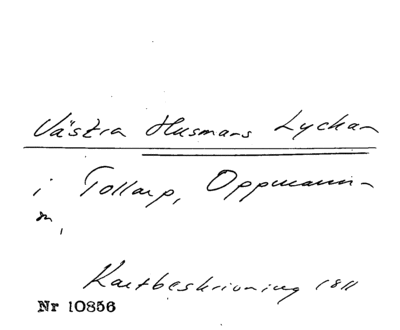 Västra Husmans Lyckan
i Tollarp, Oppmanna-
n,
Kartbeskrivning 1811
Nr 10856